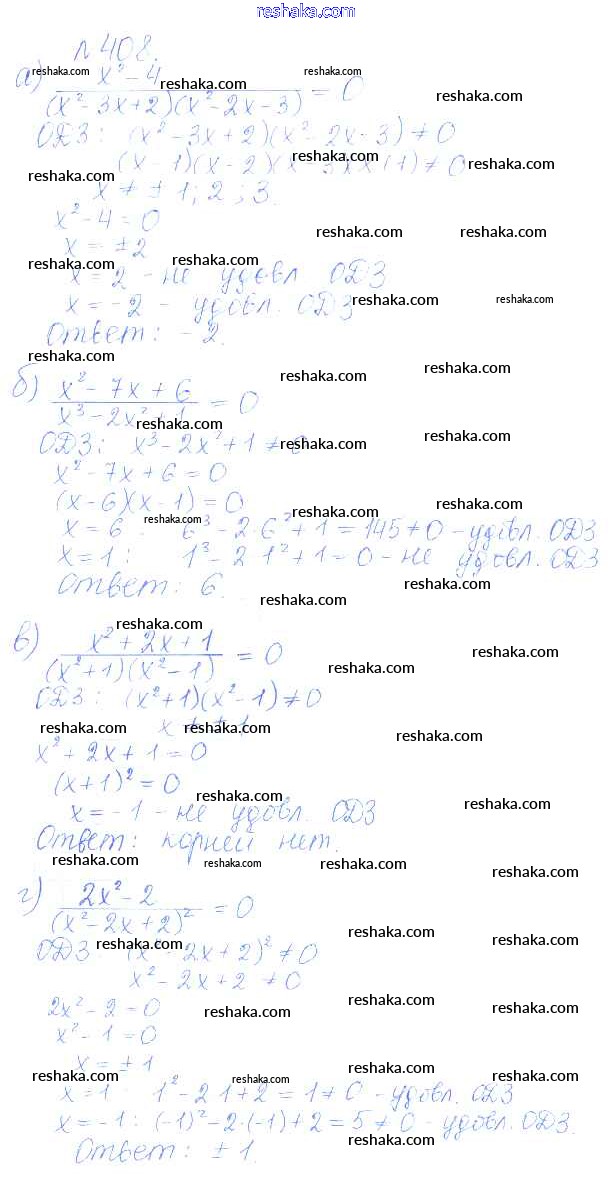 reshaka.com
№ 408.
а) x² - 4 / (x² - 3x + 2)(x² - 2x - 3) = 0
ОДЗ: (x² - 3x + 2)(x² - 2x - 3) ≠ 0
(x - 1)(x - 2)(x - 3)(x + 1) ≠ 0
x ≠ ± 1; 2; 3.
x² - 4 = 0
x = ± 2
x = 2 - не удовл. ОДЗ
x = - 2 - удовл. ОДЗ
Ответ: - 2.
б) x² - 7x + 6 / x³ - 2x² + 1 = 0
ОДЗ: x³ - 2x² + 1 ≠ 0
x² - 7x + 6 = 0
(x - 6)(x - 1) = 0
x = 6 : 6³ - 2·6² + 1 = 145 ≠ 0 - удовл. ОДЗ
x = 1 : 1³ - 2·1² + 1 = 0 - не удовл. ОДЗ
Ответ: 6.
в) x² + 2x + 1 / (x² + 1)(x² - 1) = 0
ОДЗ: (x² + 1)(x² - 1) ≠ 0
x ≠ ± 1
x² + 2x + 1 = 0
(x + 1)² = 0
x = - 1 - не удовл. ОДЗ
Ответ: корней нет.
г) 2x² - 2 / (x² - 2x + 2)² = 0
ОДЗ: (x² - 2x + 2)² ≠ 0
x² - 2x + 2 ≠ 0
2x² - 2 = 0
x² - 1 = 0
x = ± 1
x = 1 : 1² - 2·1 + 2 = 1 ≠ 0 - удовл. ОДЗ
x = - 1 : (-1)² - 2·(-1) + 2 = 5 ≠ 0 - удовл. ОДЗ.
Ответ: ± 1.